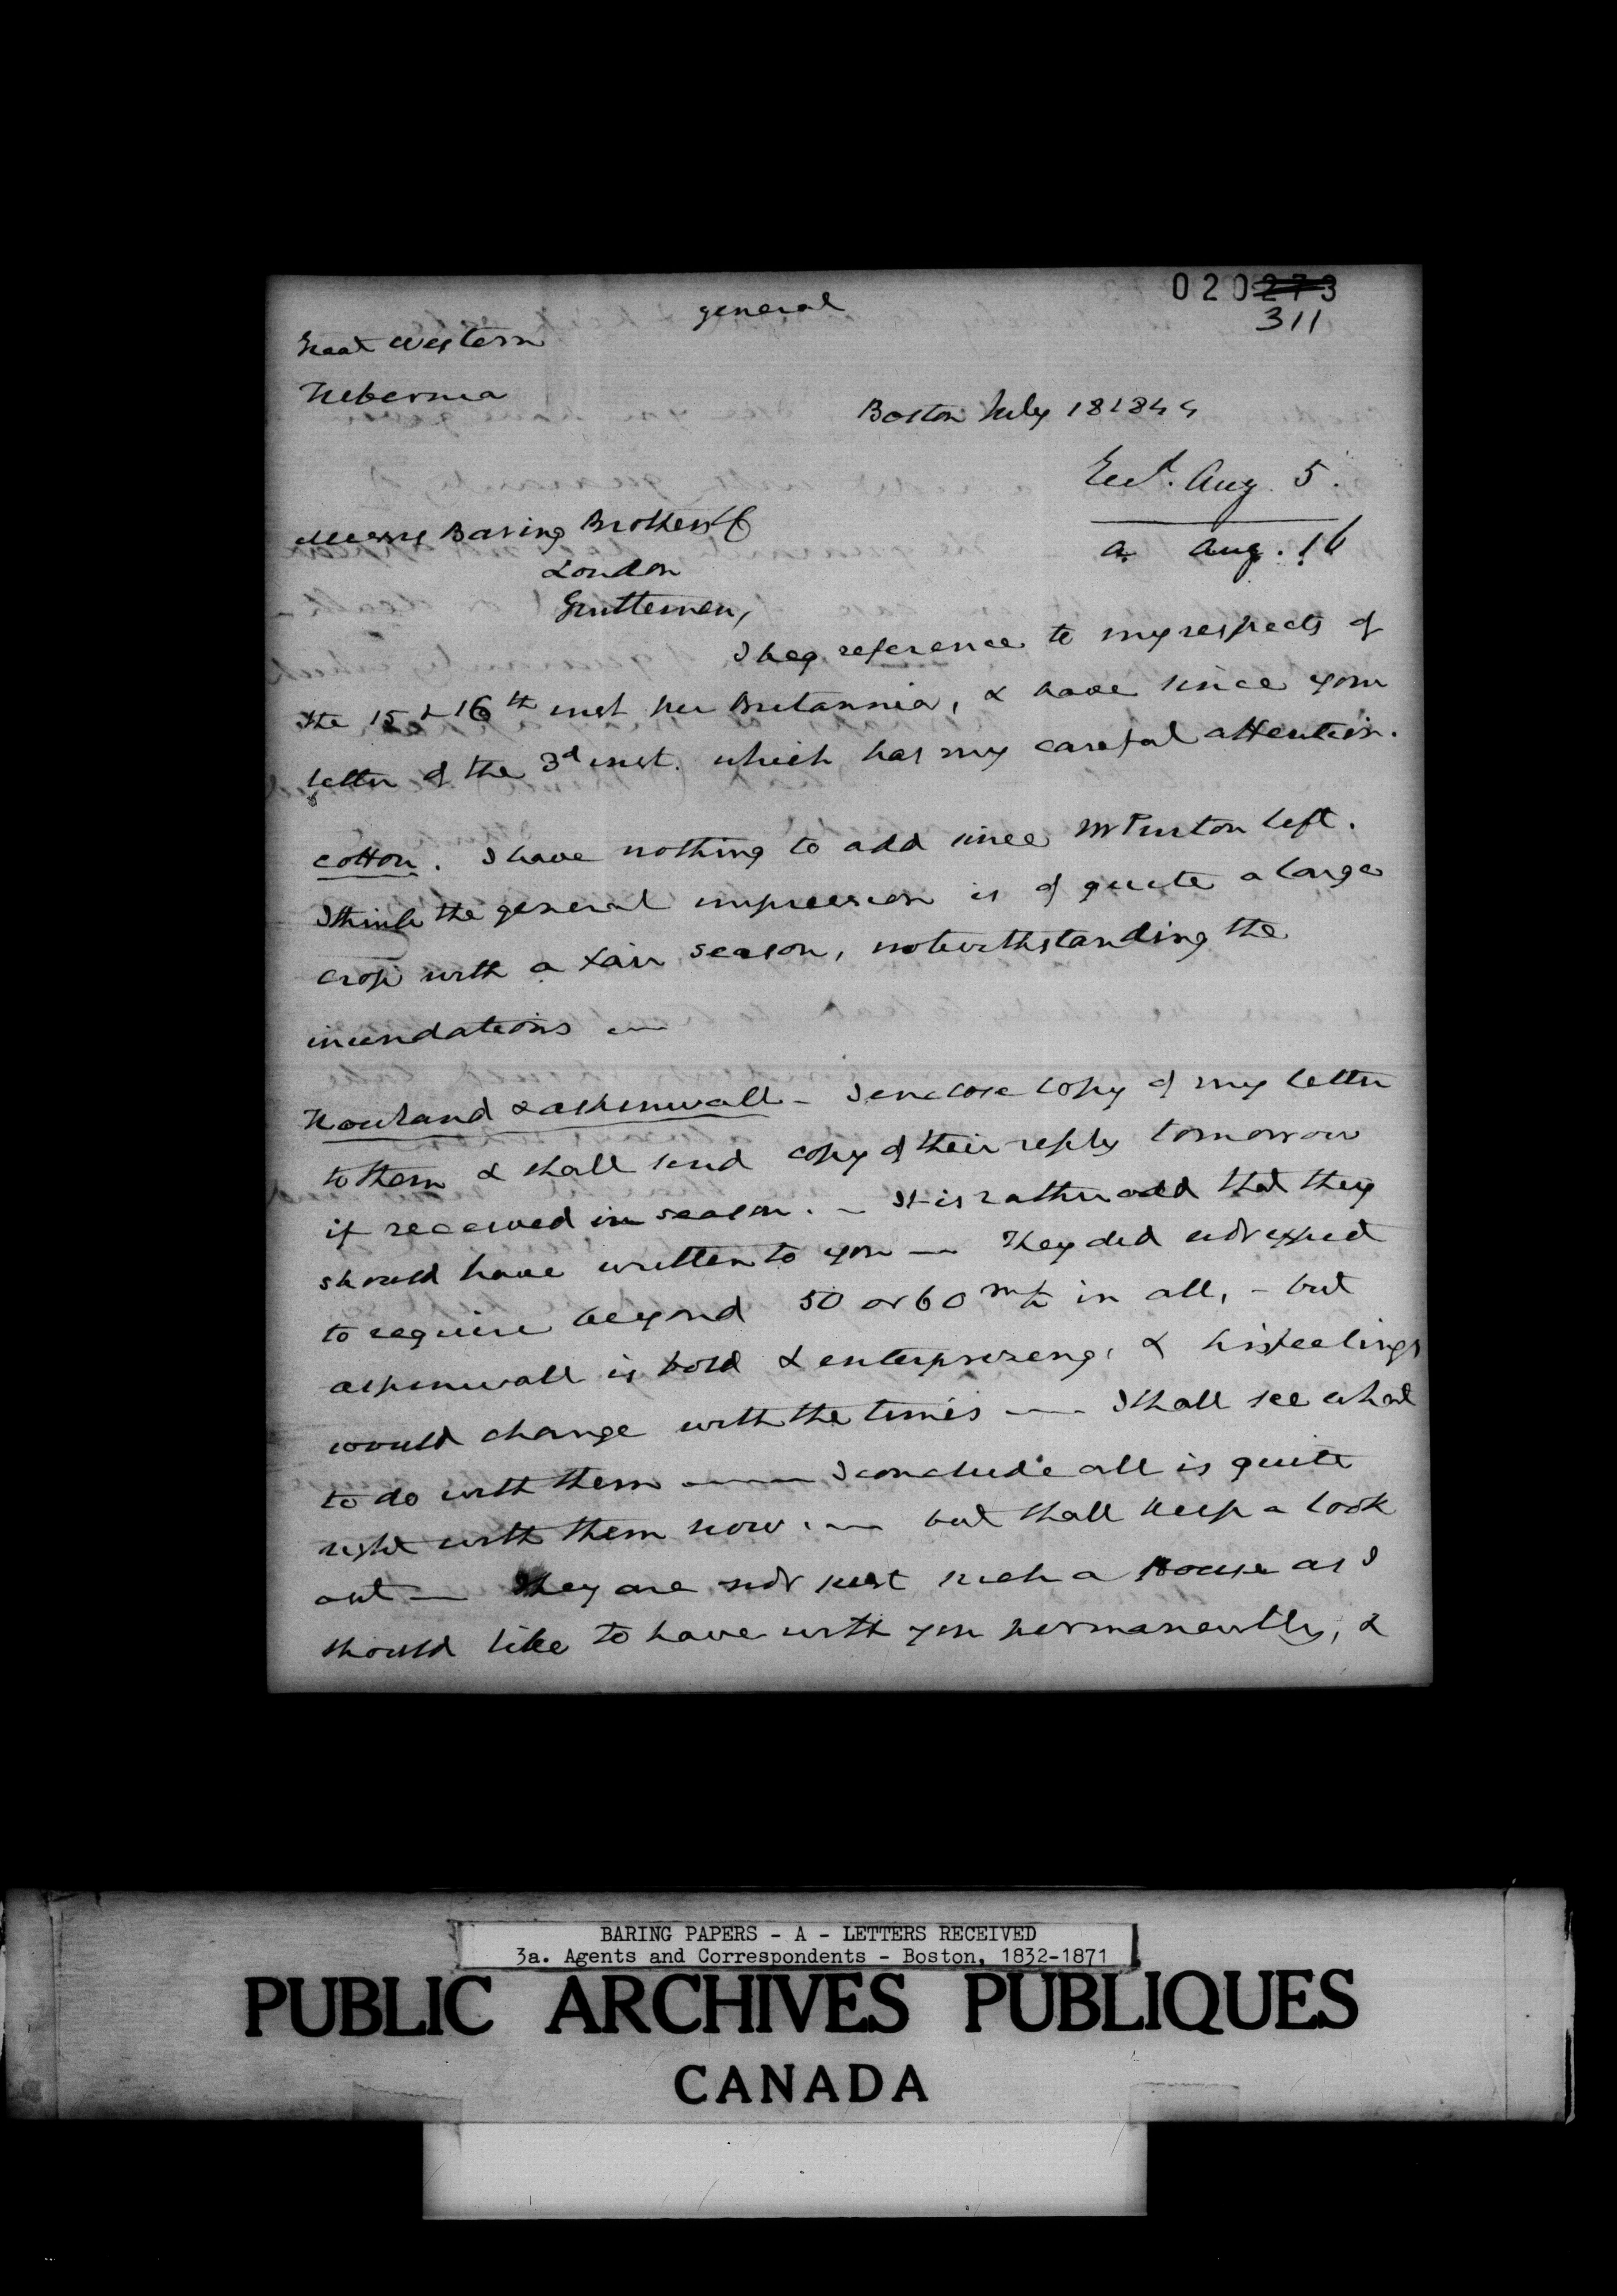 general
020273
311
Great Western
Hibernia
Boston July 18 1844
Recd. Aug. 5.
a. Aug. 16
Messrs Baring Brothers & Co
London
Gentlemen,
I beg reference to my respects of
the 15 & 16th inst per Britannia, & have since your
letter of the 3d inst. which has my careful attention.
Cotton. I have nothing to add since Mr left.
I think the general impression is of quite a large
crop with a fair season, notwithstanding the
inundations —
Howland & Aspinwall - I enclose copy of my letter
to them & shall send copy of their reply tomorrow
if received in season. - It is rather odd that they
should have written to you — They did not expect
to require beyond 50 or 60 in all, - but
Aspinwall is bold & enterprizeng, & his feelings
would change with the times — I shall see what
to do with them — I conclude all is quite
right with them now. — but shall keep a look
out — They are not just such a House as I
should like to have with you permanently, &
BARING PAPERS - A - LETTERS RECEIVED
3a. Agents and Correspondents - Boston, 1832-1871
PUBLIC ARCHIVES PUBLIQUES
CANADA